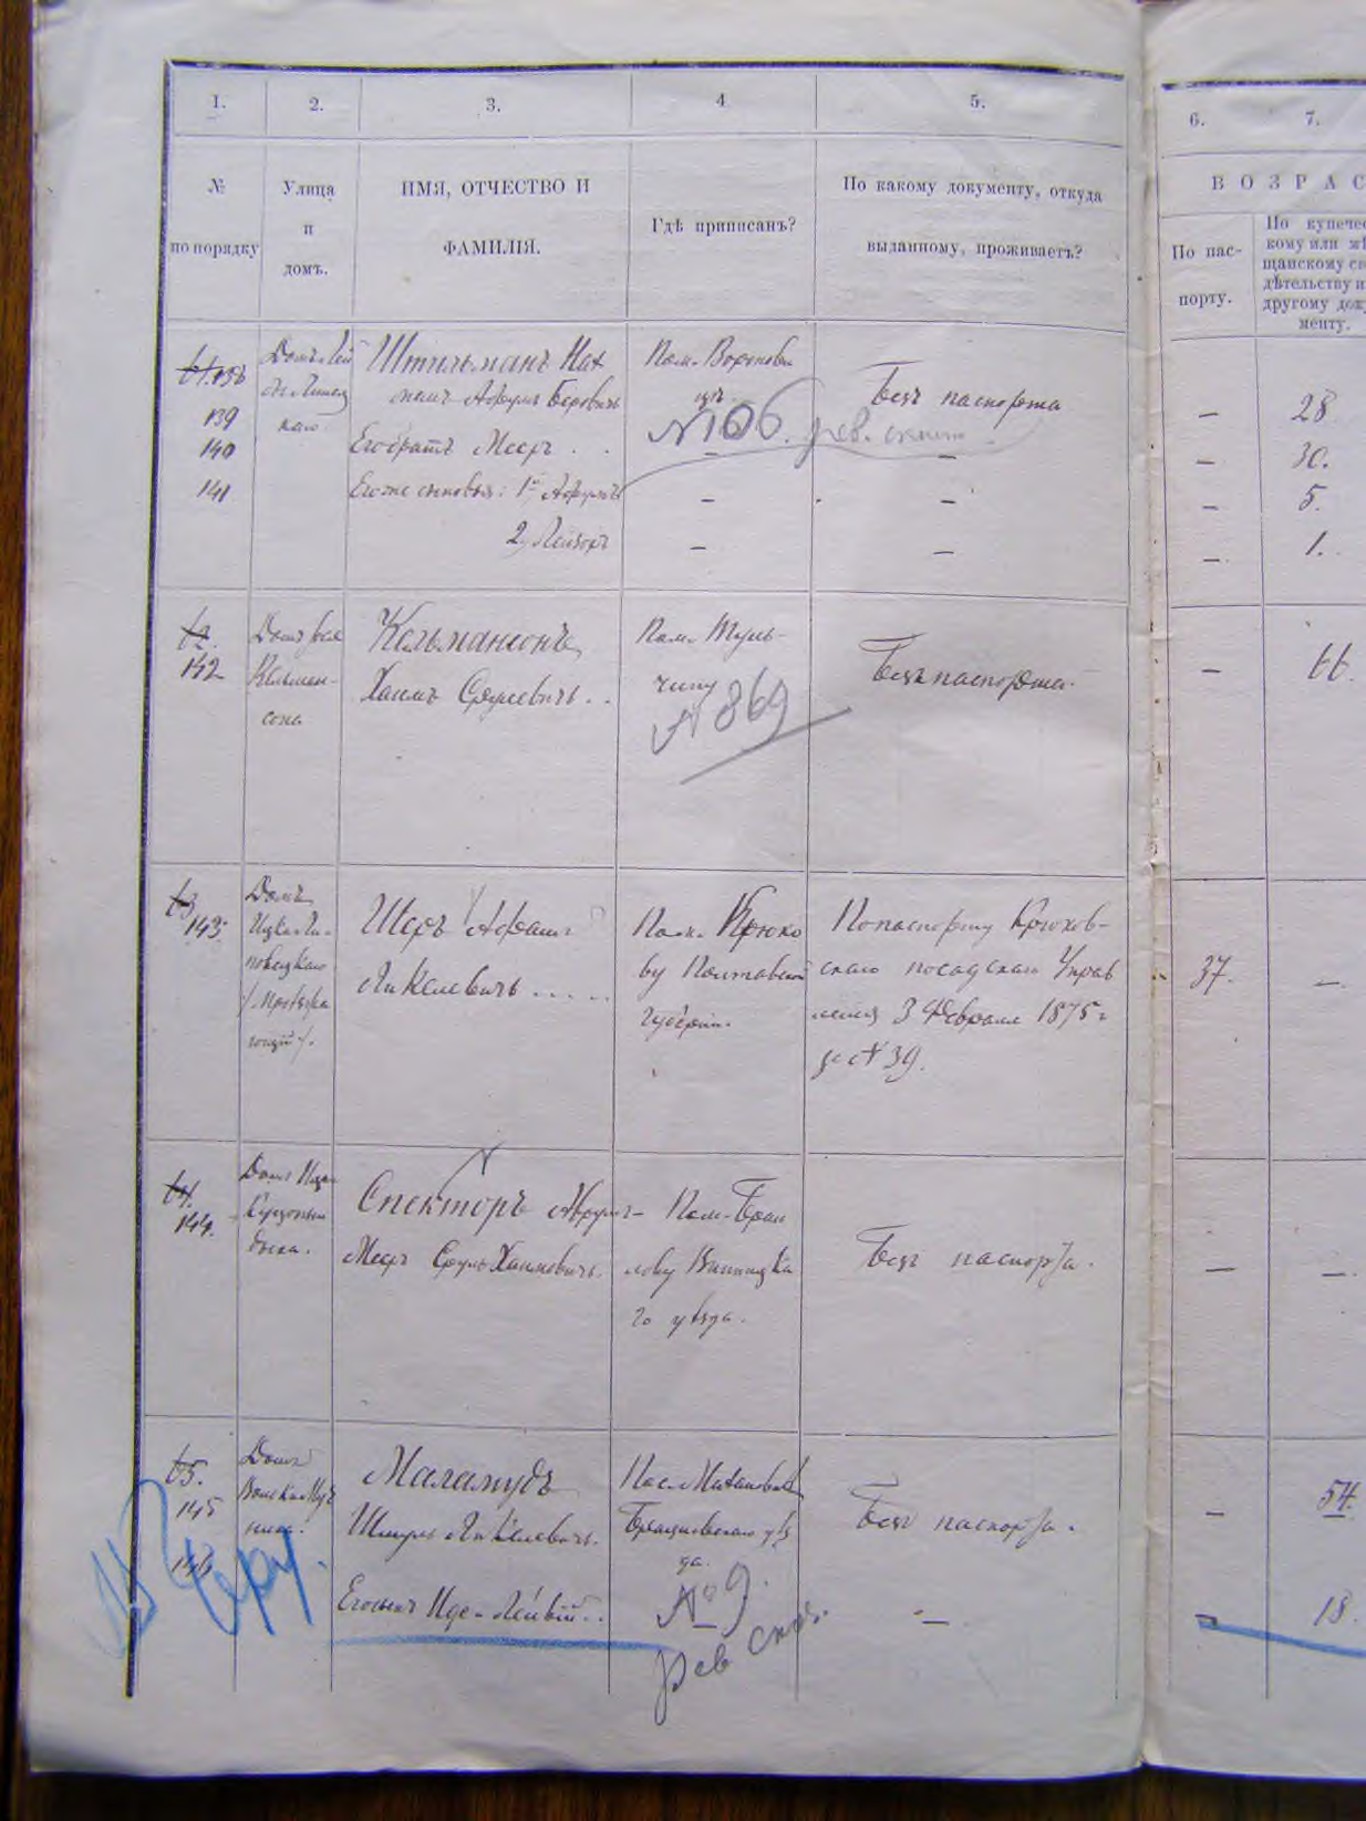 1.
2.
3.
4
5.
6.
7.
№
по порядку
Улица
и
домъ.
ИМЯ, ОТЧЕСТВО И
ФАМИЛІЯ.
Гдѣ приписанъ?
По какому документу, откуда
выданному, проживаетъ?
ВОЗРАС
По пас-
порту.
По купечес
кому или мѣ
щанскому св
дѣтельству и
другому доку
менту.
61. 138
139
140
141
Штильманъ Нах
манъ Аврумъ Беровичъ
Его братъ Мееръ . .
Его же сыновья: 1й Аврумъ
2, Лейзоръ
№ 106. рев. сказ
Безъ паспорта
— 28
— 30.
— 5.
— 1.
62.
142
Кельмансонъ,
Хаимъ Срулевичъ . .
Пом. Туль-
чину
№ 869
Безъ паспорта.
— 66.
63
143.
Домъ
Шеръ Абрамъ
Янкелевичъ . . . . .
Пом. Крюко
ву Полтавской
Губерніи.
По паспорту Крюков-
скаго посадскаго Управ
ленія 3 Февраля 1875 г
за № 39.
37. —
64.
144.
Спекторъ Аврумъ-
Меер Сруль Хаимовичъ.
Пом. Браи
лову Винницка
го уѣзда.
Безъ паспорта.
— —
65.
145
146
Домъ
Маламудъ
Шмуль Янкелевичъ.
Его сынъ Иде-Лейвій . .
Брацлавскаго уѣз
да.
№ 9.
рев сказ.
Безъ паспорта.
—
— 54.
18.